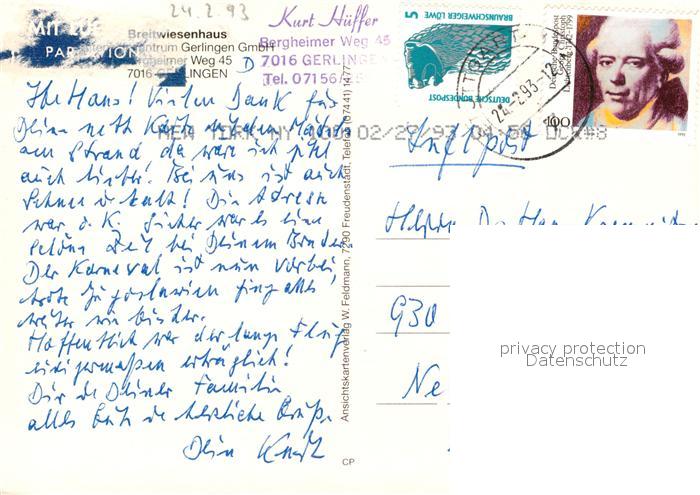 24.2.93
MIT LU
PAR AVION
Breitwiesenhaus
zentrum Gerlingen GmbH
Bergheimer Weg 45
7016 GERLINGEN
D
Kurt Hüffer
Bergheimer Weg 45
7016 GERLINGE
Tel. 07156/
5
BRAUNSCHWEIGER LÖWE
DEUTSCHE BUNDESPOST
Deutsche Bundespost
100
24.2.93-12
NEW YORK NY 02/27/93 04: DCR#8
Hans! Vielen Dank für
Deine nette Karte
am Strand, da wäre ich jetzt
auch lieber! Bei uns ist auch
Schnee u. kalt! Die Adresse
war o.K. Sicher war es eine
schöne Zeit bei Deinem Bruder.
Der Karneval ist nun vorbei,
Jugoslawien ging alles
weiter wie bisher.
Hoffentlich war der lange Flug
einigermaßen erträglich!
Dir u. Deiner Familie
alles Gute u. herzliche Grüße
Dein Kurt
Ansichtskartenverlag W. Feldmann, 7290 Freudenstadt, Telefon (07441) 1477
CP
Luftpost
930
Ne
privacy protection
Datenschutz